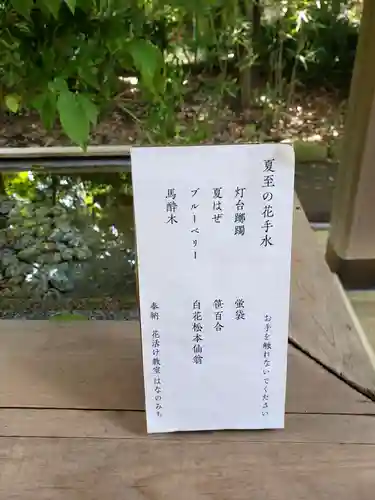 夏至の花手水
お手を触れないでください
灯台躑躅
蛍袋
夏はぜ
笹百合
ブルーベリー
白花松本仙翁
馬酔木
奉納 花活け教室はなのみち